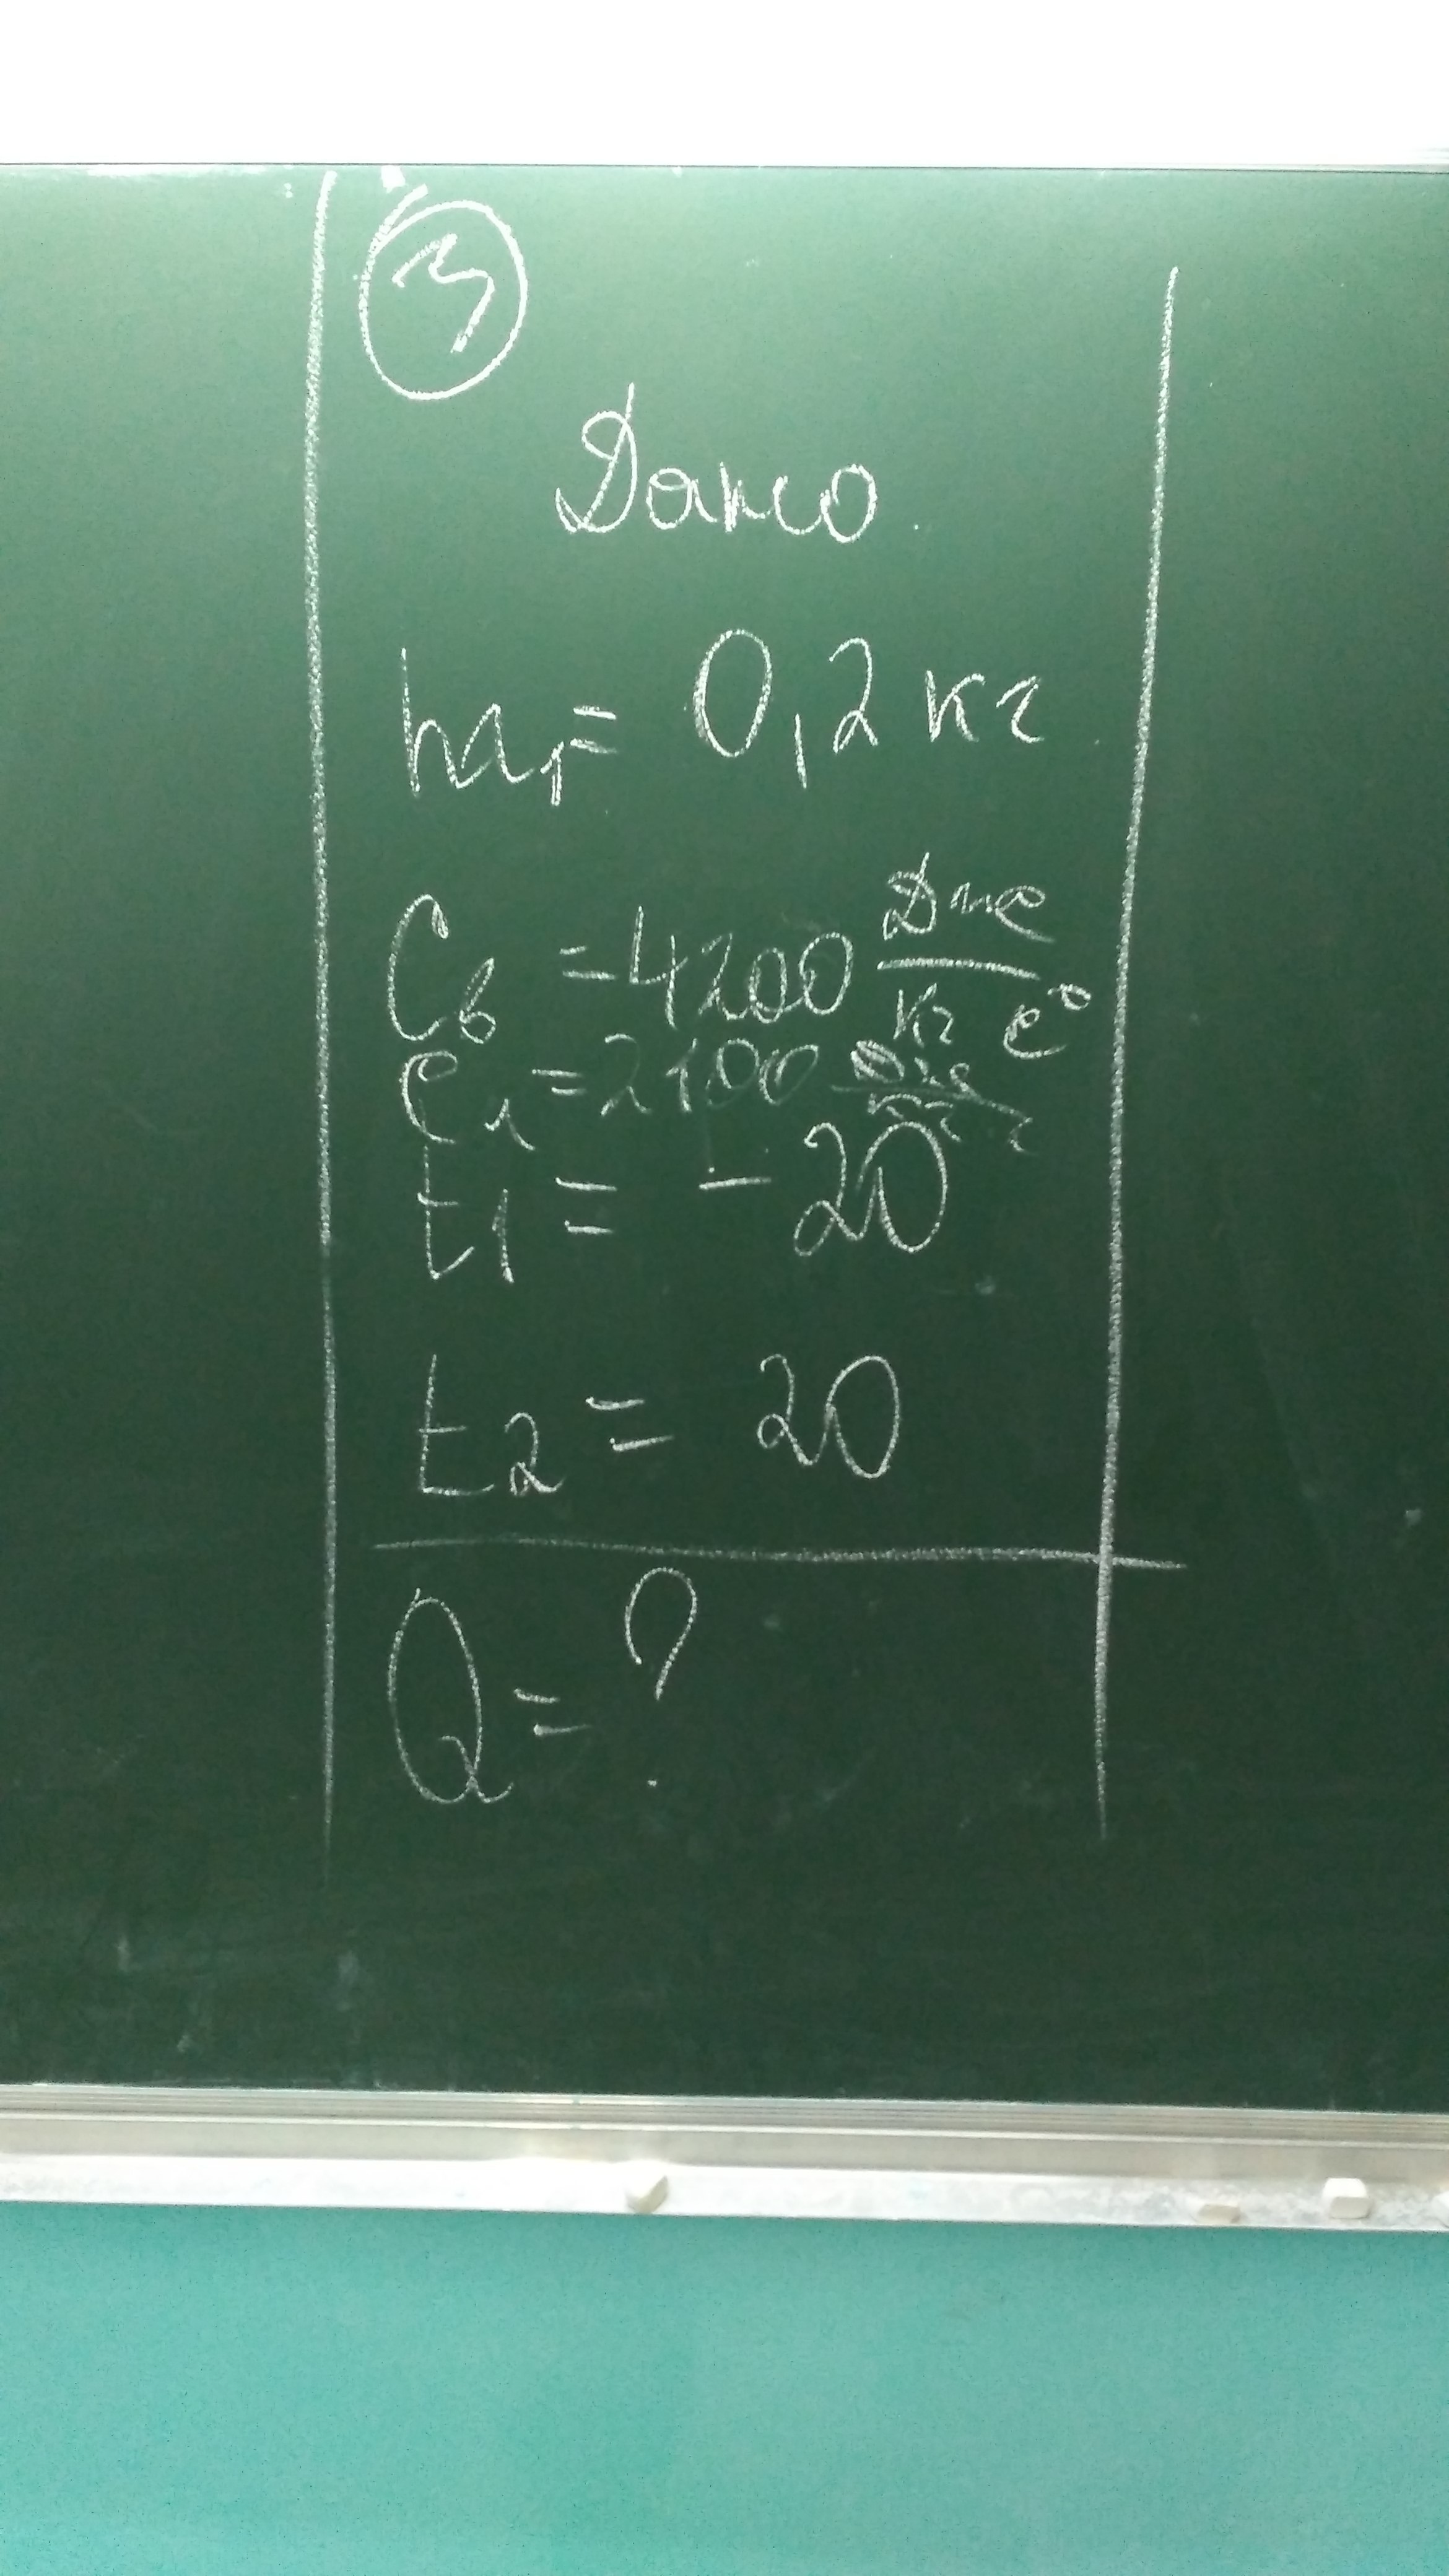 3
Дано
m₁ = 0,2 кг
Cв = 4200 Дж/кг C°
Cл = 2100 Дж/кг C
t1 = - 20
t2 = 20
Q = ?